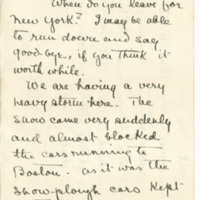 When do you leave for
New York? I may be able
to run down and say
good-bye, if you think it
worth while.
We are having a very
heavy storm here. The
snow came very suddenly
and almost blocked
the cars running to
Boston. As it was the
snow-plough cars kept